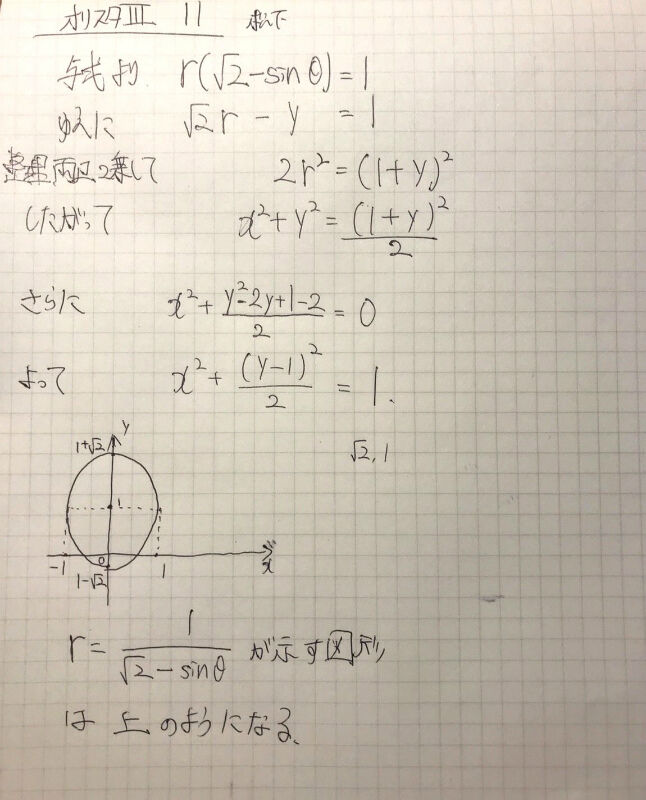 オリスタⅢ 11 松下
与式より r(√2-sinθ)=1
ゆえに √2r - y = 1
両辺2乗して 2r² = (1+y)²
したがって x²+y² = (1+y)²/2
さらに x² + (y²-2y+1-2)/2 = 0
よって x² + (y-1)²/2 = 1.
y
1+√2
√2, 1
1
0
-1 1 x
1-√2
r = 1/(√2-sinθ) が示す図形
は 上のようになる。